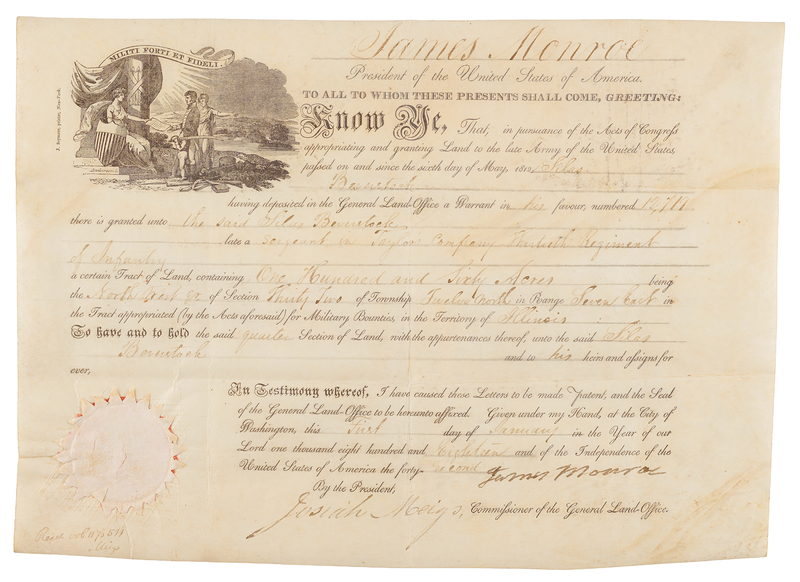 MILITI FORTI ET FIDELI.
James Monroe
President of the United States of America.
TO ALL TO WHOM THESE PRESENTS SHALL COME, GREETING:
Know Ye, That, in pursuance of the Acts of Congress
appropriating and granting Land to the late Army of the United States,
passed on and since the sixth day of May, 1812, Silas
having deposited in the General Land-Office a Warrant in his favour, numbered
there is granted unto the said Silas
late a Sergeant in Taylors Company Regiment
of Infantry
a certain Tract of Land, containing One Hundred and Sixty Acres being
the North of Section Thirty Two of Township Twelve North in Range Seven East in
the Tract appropriated (by the Acts aforesaid) for Military Bounties, in the Territory of Illinois
To have and to hold the said quarter Section of Land, with the appurtenances thereof, unto the said Silas
and to his heirs and assigns for
ever,
In Testimony whereof, I have caused these Letters to be made Patent, and the Seal
of the General Land-Office to be hereunto affixed. Given under my Hand, at the City of
Washington, this first day of January in the Year of our
Lord one thousand eight hundred and Eighteen and of the Independence of the
United States of America the forty-second James Monroe
By the President,
Josiah Meigs, Commissioner of the General Land-Office.
Meigs